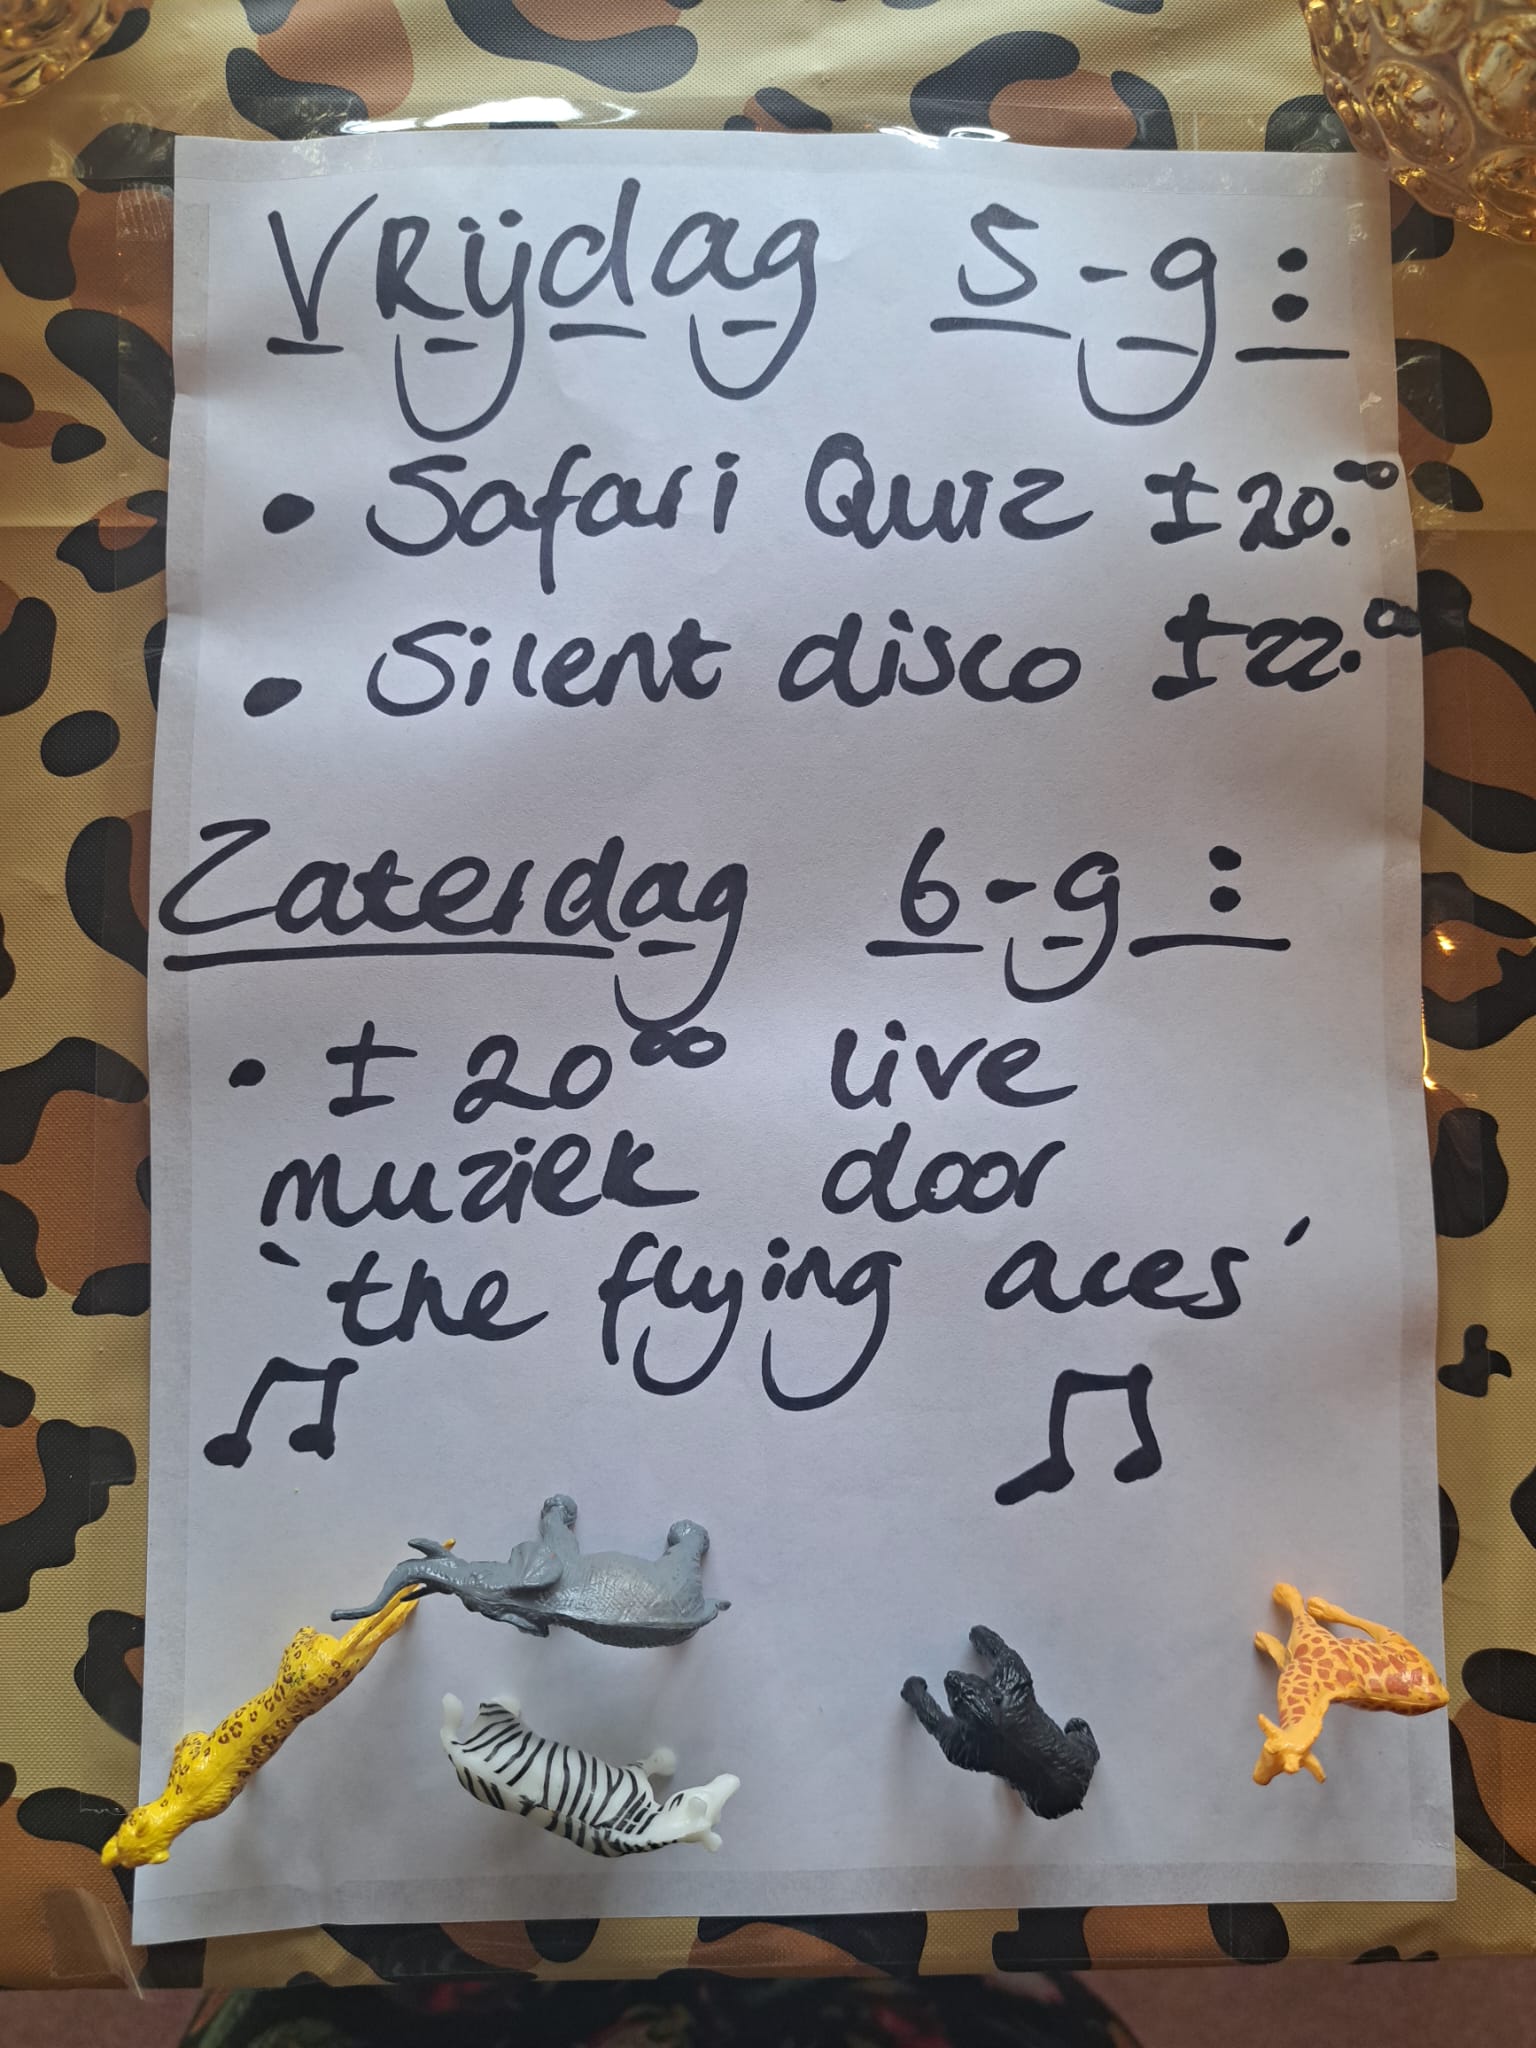 Vrijdag 5-9:
• Safari Quiz ± 20.00
• Silent disco ± 22.00
Zaterdag 6-9:
• ± 20.00 live
muziek door
'the flying aces'